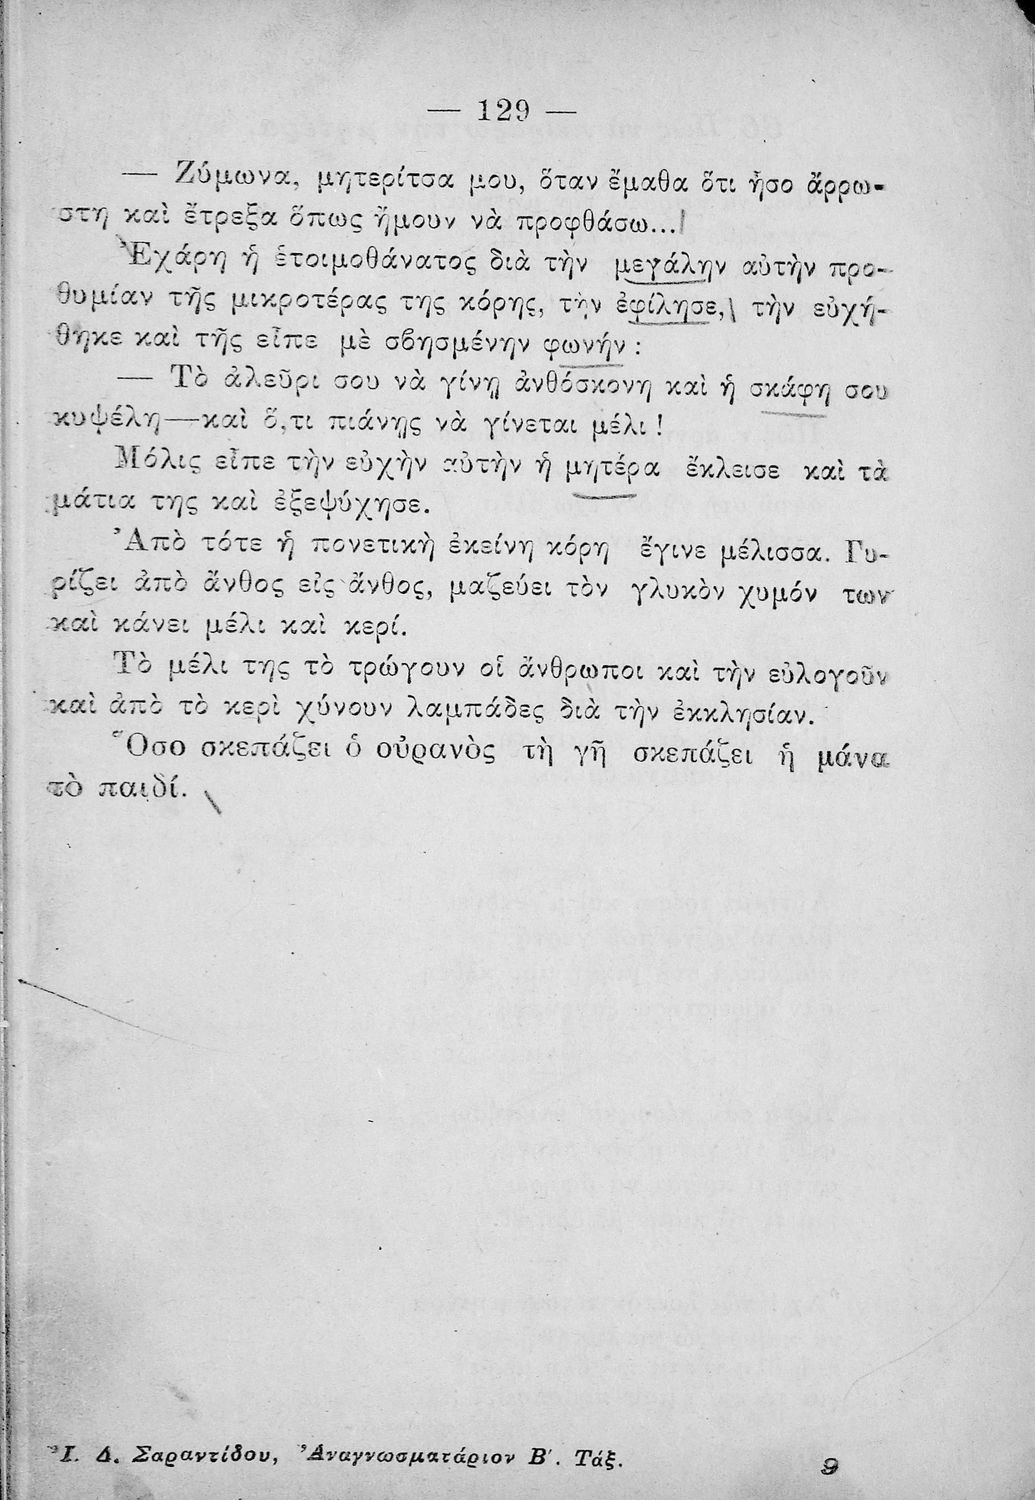 — 129 —
— Ζύμωνα, μητερίτσα μου, ὅταν ἔμαθα ὅτι ἦσο ἄρρω-
στη καὶ ἔτρεξα ὅπως ἤμουν νὰ προφθάσω...
Ἐχάρη ἡ ἑτοιμοθάνατος διὰ τὴν μεγάλην αὐτὴν προ-
θυμίαν τῆς μικροτέρας της κόρης, τὴν ἐφίλησε, τὴν εὐχή-
θηκε καὶ τῆς εἶπε μὲ σβησμένην φωνήν :
— Τὸ ἀλεῦρι σου νὰ γίνῃ ἀνθόσκονη καὶ ἡ σκάφη σου
κυψέλη—καὶ ὅ,τι πιάνῃς νὰ γίνεται μέλι !
Μόλις εἶπε τὴν εὐχὴν αὐτὴν ἡ μητέρα ἔκλεισε καὶ τὰ
μάτια της καὶ ἐξεψύχησε.
Ἀπὸ τότε ἡ πονετικὴ ἐκείνη κόρη ἔγινε μέλισσα. Γυ-
ρίζει ἀπὸ ἄνθος εἰς ἄνθος, μαζεύει τὸν γλυκὸν χυμόν των
καὶ κάνει μέλι καὶ κερί.
Τὸ μέλι της τὸ τρώγουν οἱ ἄνθρωποι καὶ τὴν εὐλογοῦν
καὶ ἀπὸ τὸ κερὶ χύνουν λαμπάδες διὰ τὴν ἐκκλησίαν.
Ὅσο σκεπάζει ὁ οὐρανὸς τὴ γῆ σκεπάζει ἡ μάνα
τὸ παιδί.
Ἰ. Δ. Σαραντίδου, Ἀναγνωσματάριον Β΄. Τάξ. 9